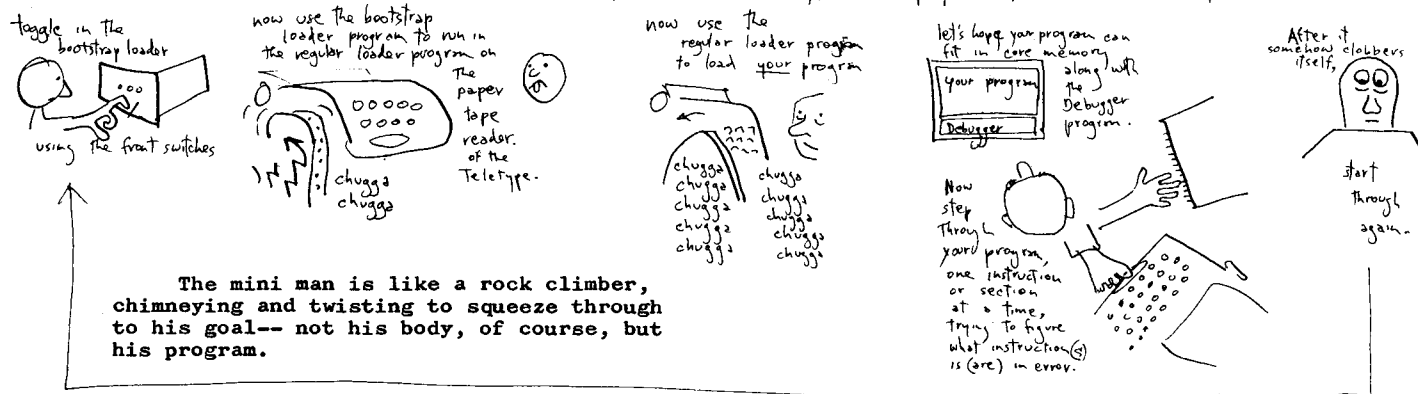 toggle in the
bootstrap loader
using the front switches
now use the bootstrap
loader program to run in
the regular loader program on
the
paper
tape
reader.
of the
Teletype.
chugga
chugga
now use the
regular loader program
to load your program
chugga
chugga
chugga
chugga
chugga
chugga
chugga
chugga
chugga
chugga
let's hope your program can
fit in core memory
along with
the
Debugger
program.
your program
Debugger
Now
step
through
your program,
one instruction
or section
at a time,
trying to figure
what instruction(s)
is (are) in error.
After it
somehow clobbers
itself,
start
through
again.
The mini man is like a rock climber,
chimneying and twisting to squeeze through
to his goal-- not his body, of course, but
his program.